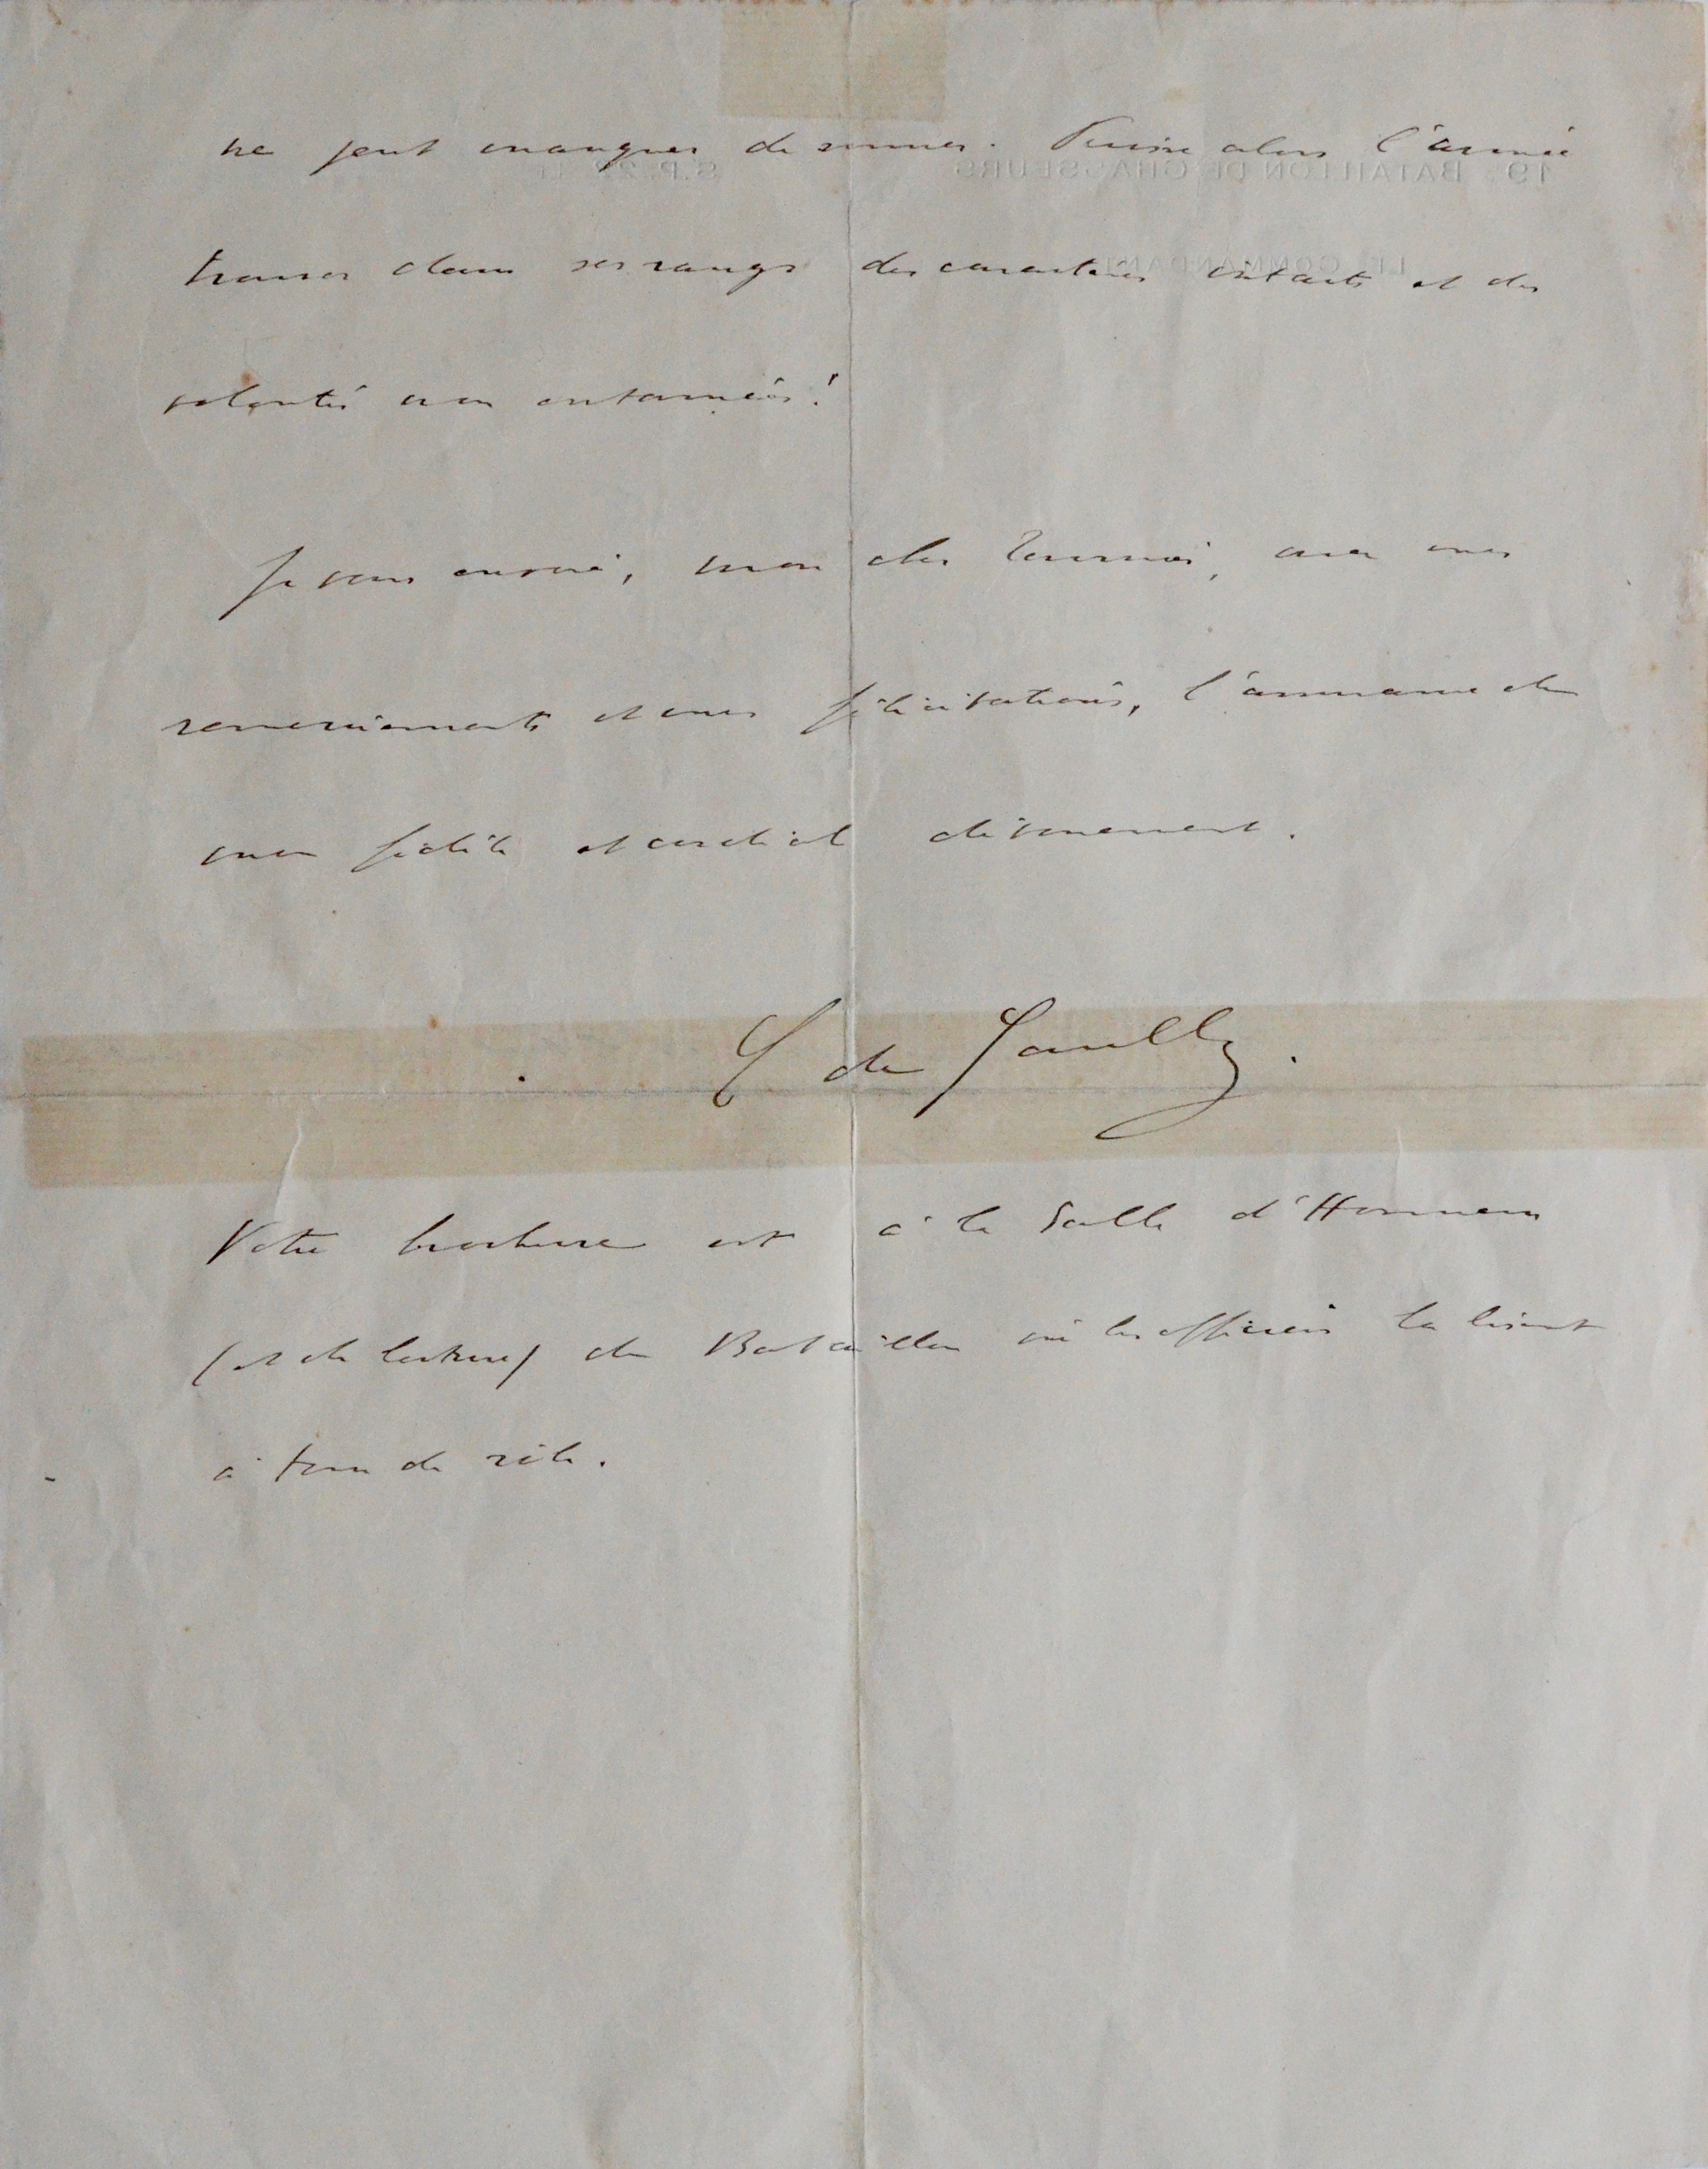 ne peut manquer de sonner. Puisse alors l'armée
trouver dans ses rangs des caractères intacts et des
volontés non entamées!
Je vous envoie, mon cher, avec mes
remerciements et mes félicitations, l'assurance de
mon fidèle et cordial dévouement.
C de Sailly.
Votre brochure est à la Salle d'Honneur
(et de lecture) du Bataillon où les officiers la lisent
à tour de rôle.
19e BATAILLON DE CHASSEURS
S.P.
LE COMMANDANT